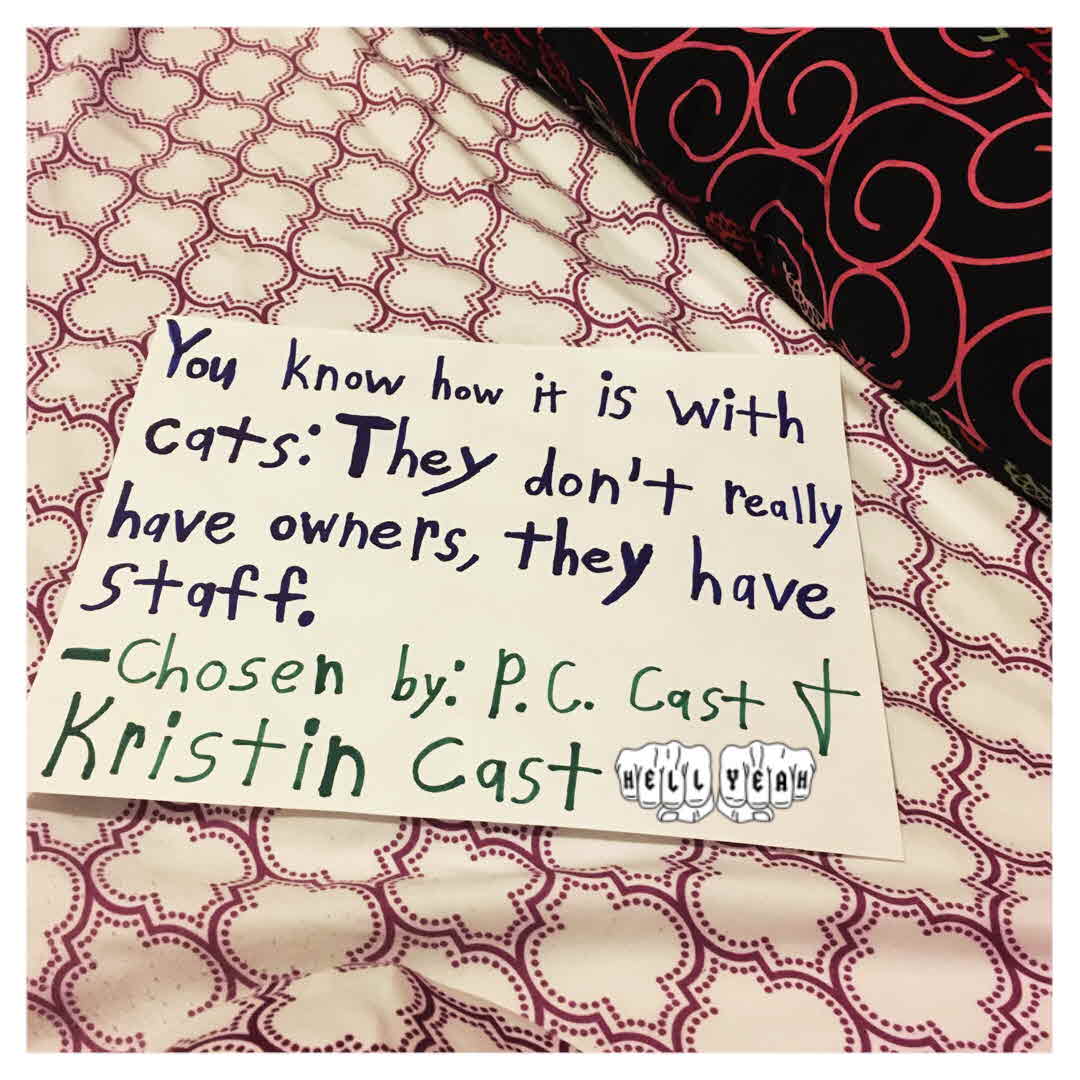 You know how it is with
cats: They don't really
have owners, they have
staff.
-Chosen by: P.C. Cast &
Kristin Cast HELL YEAH